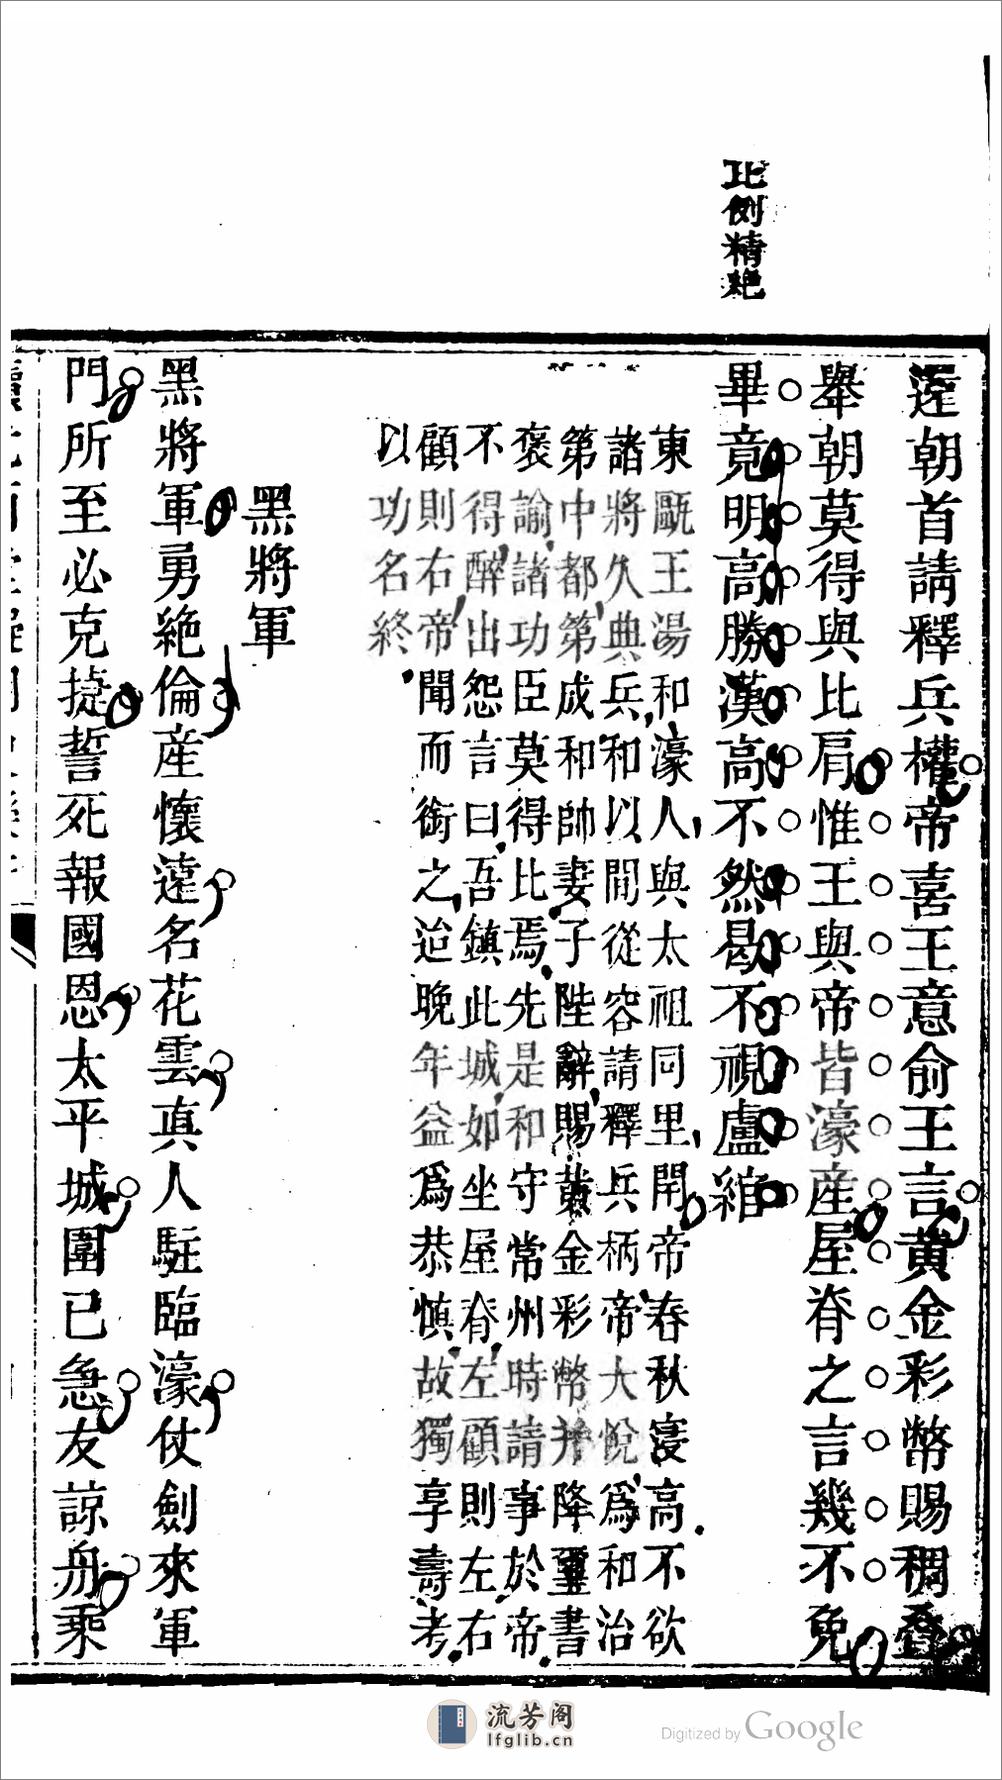 比例精絕
還朝首請釋兵權帝喜王意俞王言黃金彩幣賜稠疊
舉朝莫得與比肩惟王與帝皆濠産屋脊之言幾不免
畢竟明高勝漢高不然曷不視盧綰
東甌王湯和濠人與太祖同里閈帝春秋寖高不欲
諸將久典兵和以間從容請釋兵柄帝大悅爲和治
第中都第成和帥妻子陛辭賜黃金彩幣并降璽書
褒諭諸功臣莫得比焉先是和守常州時請事於帝
不得醉出怨言曰吾鎮此城如坐屋脊左顧則左右
顧則右帝聞而銜之迨晚年益爲恭慎故獨享壽考
以功名終
黑將軍
黑將軍勇絕倫産懷遠名花雲真人駐臨濠仗劍來軍
門所至必克捷誓死報國恩太平城圍已急友諒舟乘
流芳阁
lfglib.cn
Digitized by Google